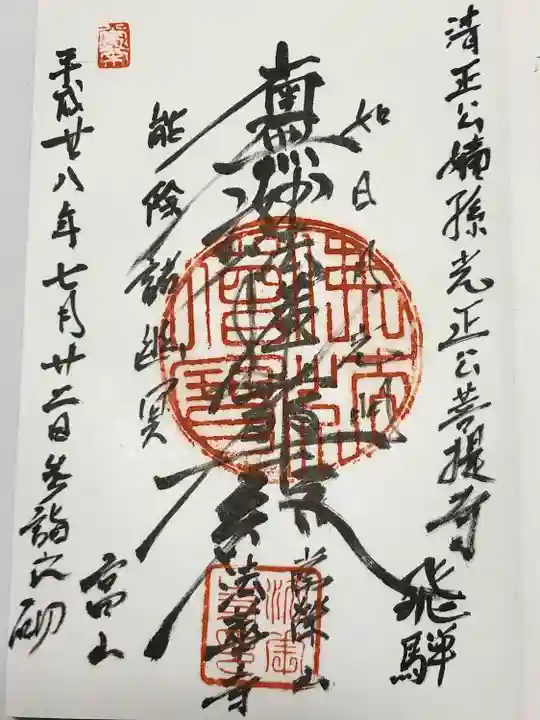 清正公嫡孫光正公菩提寺
飛騨
如日月光明
南無妙法蓮華経
能除諸幽冥
法華寺
高山
平成廿八年七月廿二日参詣之砌